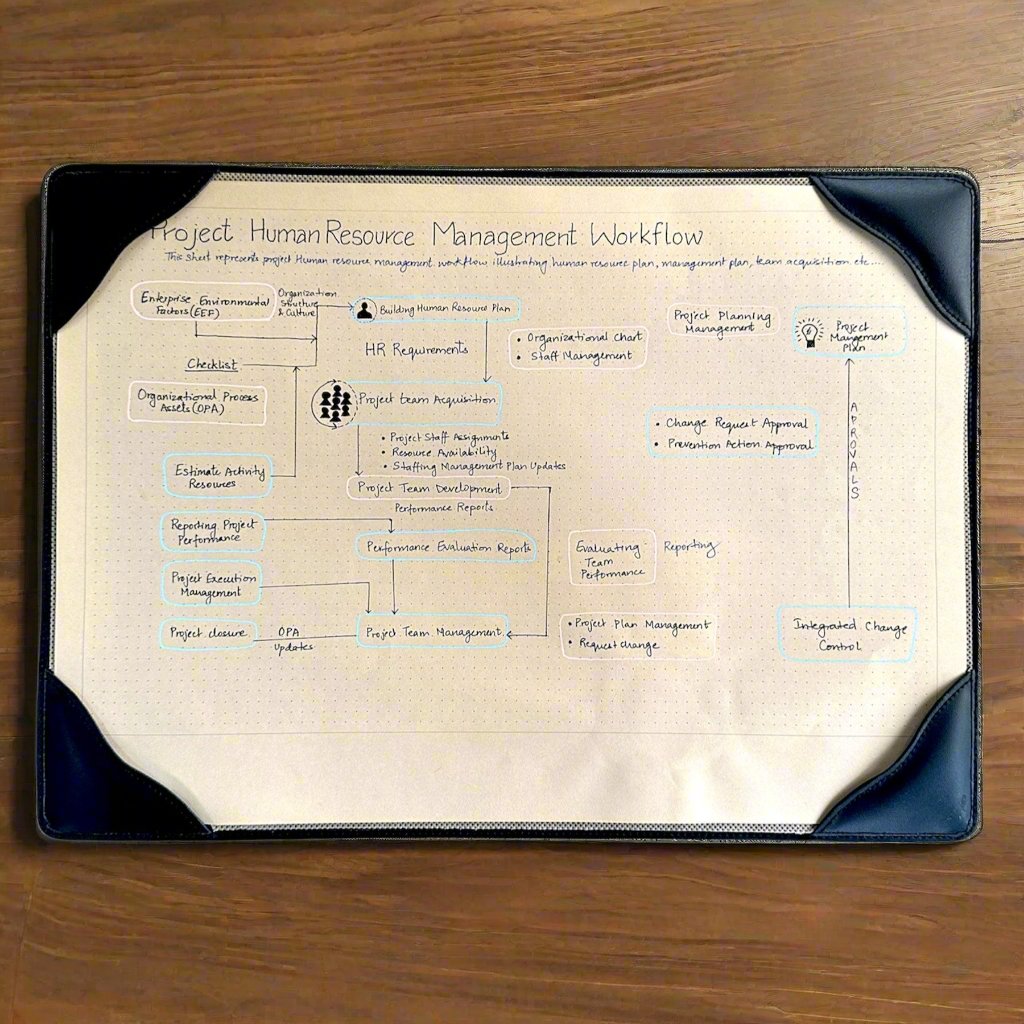 Project Human Resource Management Workflow
This sheet represents project Human resource management workflow illustrating human resource plan, management plan, team acquisition etc....
Enterprise Environmental
Factors (EEF)
Organization
Structure
& Culture
Building Human Resource Plan
Project Planning
Management
Project
Management
Plan
HR Requirements
• Organizational Chart
• Staff Management
Checklist
Organizational Process
Assets (OPA)
Project team Acquisition
• Change Request Approval
• Prevention Action Approval
APROVALS
• Project Staff Assignments
• Resource Availability
• Staffing Management Plan Updates
Estimate Activity
Resources
Project Team Development
Performance Reports
Reporting Project
Performance
Performance Evaluation Reports
Evaluating
Team
Performance
Reporting
Project Execution
Management
Project closure
OPA
Updates
Project Team Management
• Project Plan Management
• Request change
Integrated Change
Control